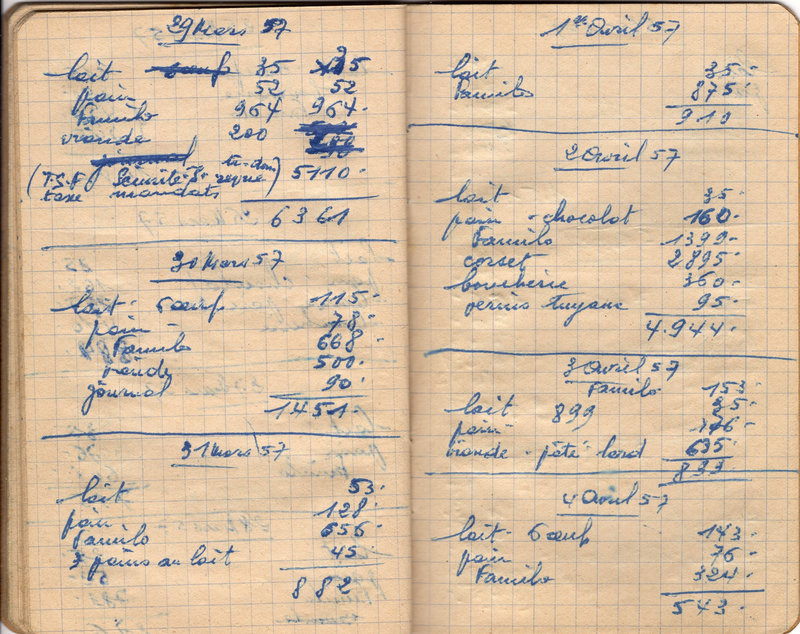 29 Mars 57
lait 35 135
pain 52 52
Familo 964 964-
viande 200
(T.S.F Sécurité-S-
taxe mandats 5110-
6361
30 Mars 57
lait - 6 œufs 115-
pain - 78-
Familo 668-
viande 500-
journal 90-
1451
31 Mars 57
lait 53-
pain 128-
Familo 656-
pains au lait 45-
882
1er Avril 57
lait 35-
Familo 875-
910
2 Avril 57
lait 35-
pain - chocolat 160-
Familo 1399-
corset 2895-
boucherie 360-
vernis tuyaux 95-
4.944-
3 Avril 57
Familo 153-
lait 899 35-
pain- 76-
viande - pâté lard 635-
899-
4 Avril 57
lait - 6 œufs 143-
pain 76-
Familo 324-
543-